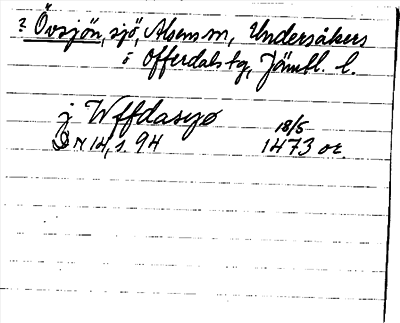 ? Övsjön, sjö, Alsens sn, Undersåkers
o Offerdals tg, Jämtl. l.
j Wffdasyø 18/5
D N 14, s. 94 1473 or.